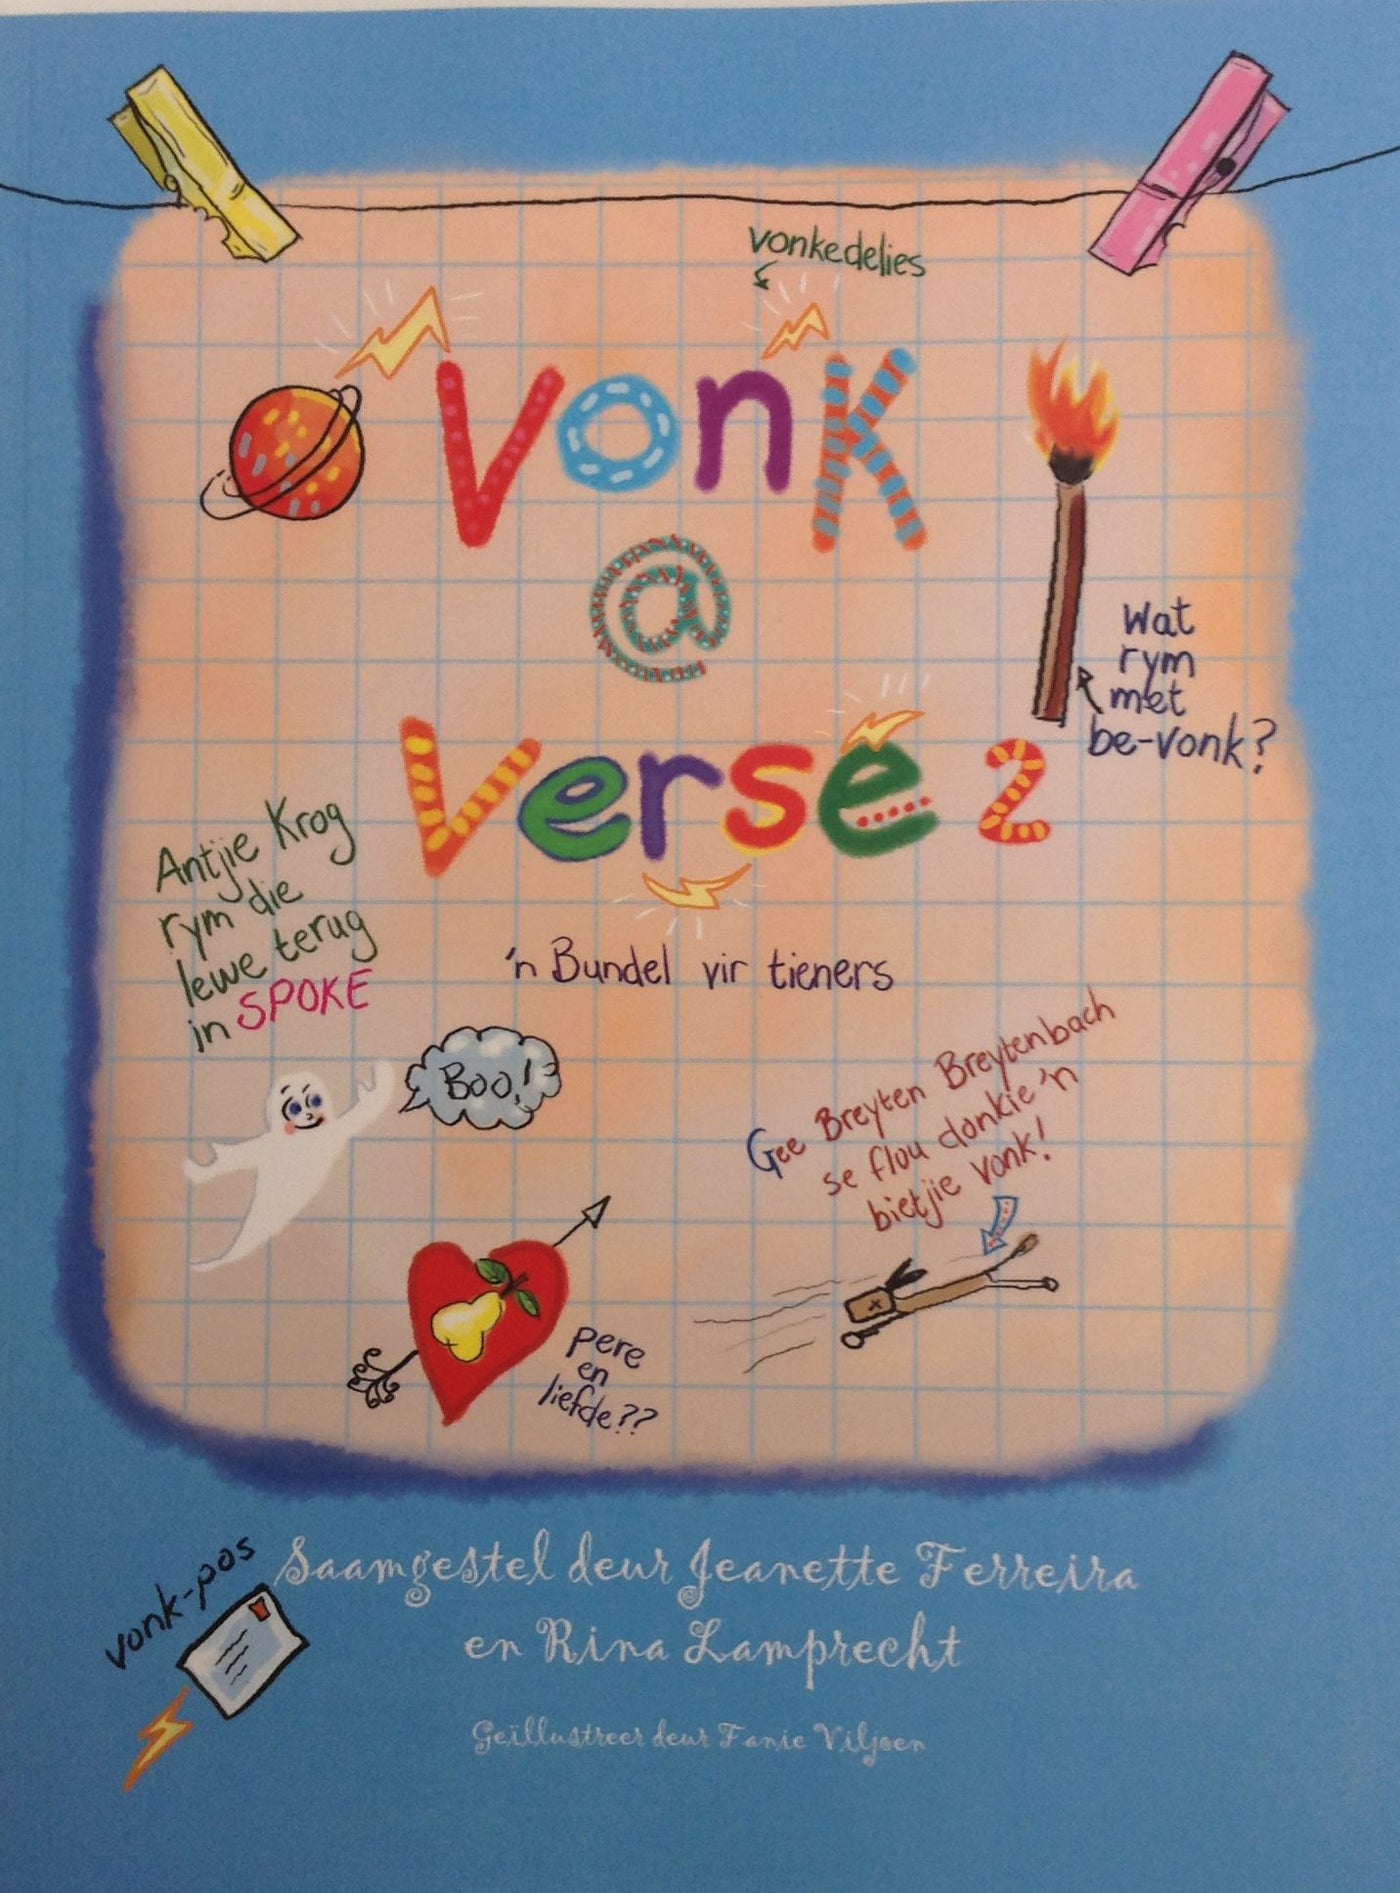 vonkedelies
Vonk
@
Verse 2
Wat
rym
met
be-vonk?
Antjie Krog
rym die
lewe terug
in SPOKE
'n Bundel vir tieners
Boo!
Gee Breyten Breytenbach
se flou donkie 'n
bietjie vonk!
Pere
en
liefde??
vonk-pos
Saamgestel deur Jeanette Ferreira
en Rina Lamprecht
Geïllustreer deur Fanie Viljoen